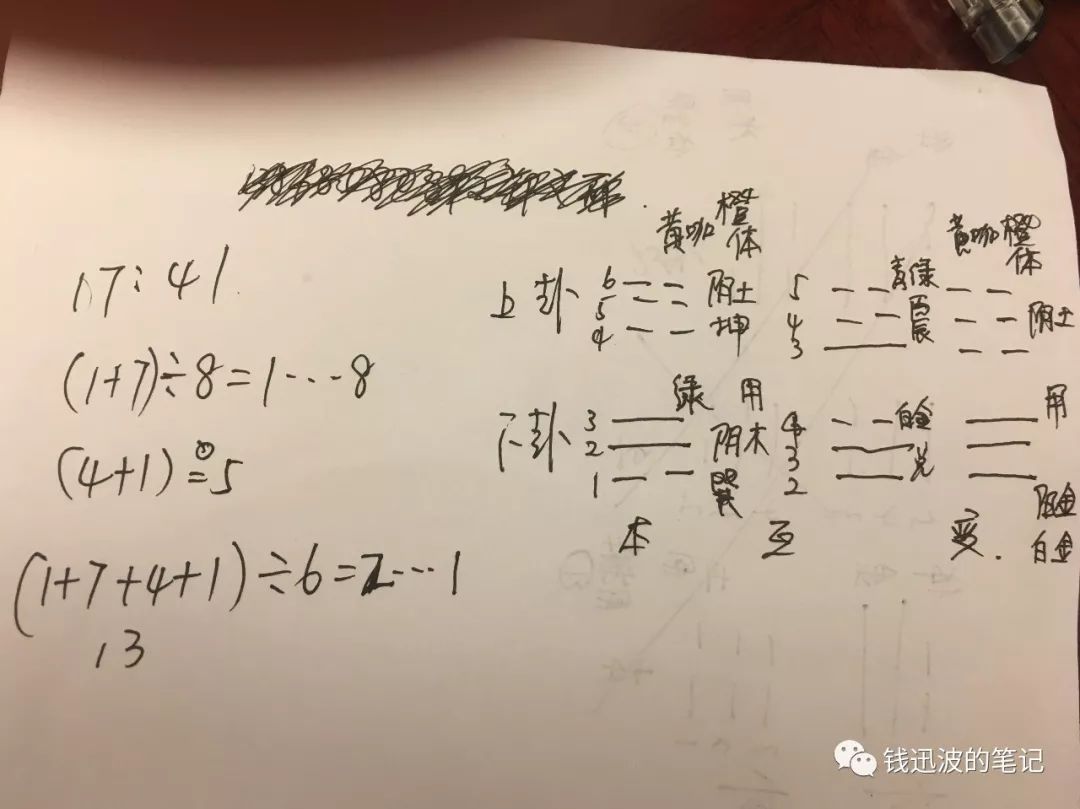 17:41
(1+7)÷8=1…8
(4+1)=5
(1+7+4+1)÷6=2…1
13
黄咖橙 黄咖橙
体 青绿 体
上卦 6 阴土 5 震
5 坤 4 阴土
4 3
绿 用 用
下卦 3 4 白金
2 阴木 3 兑
1 巽 2
阴金
本 互 变. 白金
钱迅波的笔记